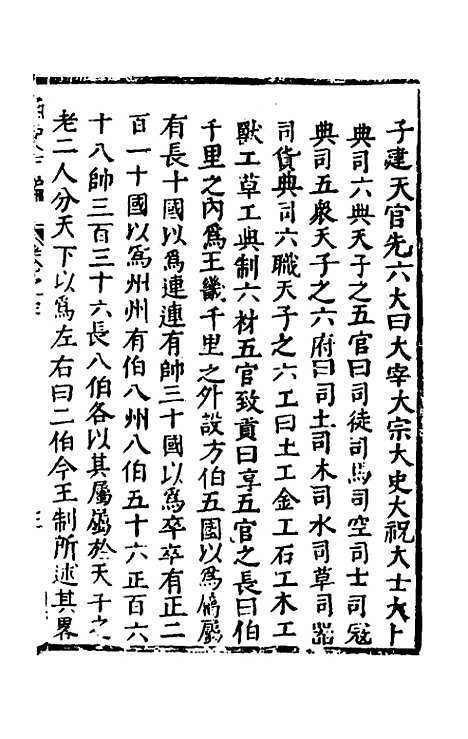 子建天官先六大曰大宰大宗大史大祝大士大卜
典司六典天子之五官曰司徒司馬司空司士司寇
典司五衆天子之六府曰司土司木司水司草司器
司貨典司六職天子之六工曰土工金工石工木工
獸工草工典制六材五官致貢曰享五官之長曰伯
千里之內爲王畿千里之外設方伯五國以爲屬屬
有長十國以爲連連有帥三十國以爲卒卒有正二
百一十國以爲州州有伯八州八伯五十六正百六
十八帥三百三十六長八伯各以其屬屬於天子之
老二人分天下以爲左右曰二伯今王制所述其畧